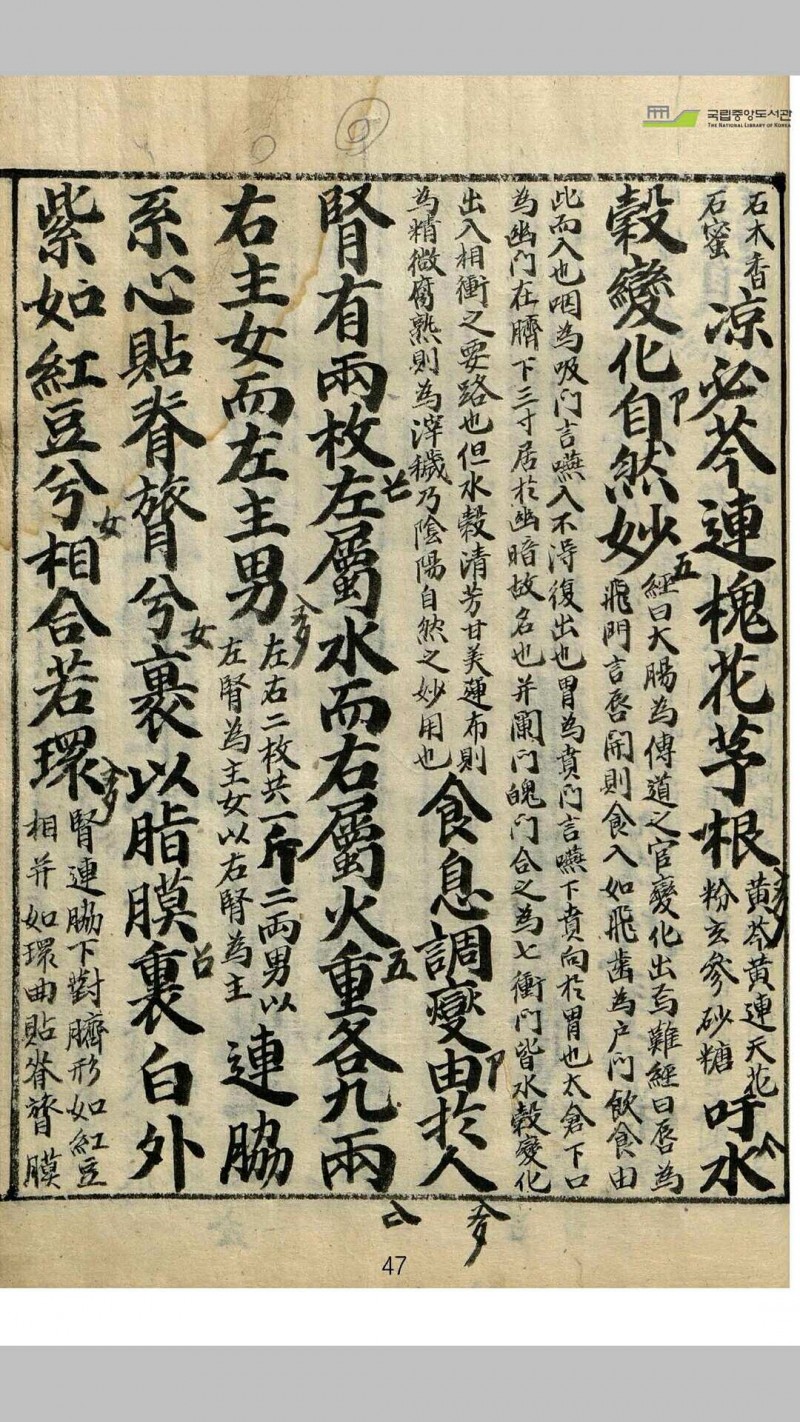 국립중앙도서관
THE NATIONAL LIBRARY OF KOREA
石木香
石蜜
凉必芩連槐花茅根
黄芩黄連天花
粉玄參砂糖
吁水
穀變化自然妙
經曰大腸為傳道之官變化出焉難經曰唇為
飛門言唇開則食入如飛齒為户門飲食由
此而入也咽為吸門言嚥入不得復出也胃為賁門言嚥下賁向於胃也太倉下口
為幽門在臍下三寸居於幽暗故名也并闌門魄門合之為七衝門皆水穀變化
出入相衝之要路也但水穀清芳甘美運布則
為精微腐熟則為滓穢乃陰陽自然之妙用也
食息調燮由於人
腎有兩枚左屬水而右屬火重各九兩
右主女而左主男
左右二枚共一斤二兩男以
左腎為主女以右腎為主
連脇
系心貼脊膂兮裹以脂膜裏白外
紫如紅豆兮相合若環
腎連脇下對臍形如紅豆
相并如環曲貼脊膂膜
47